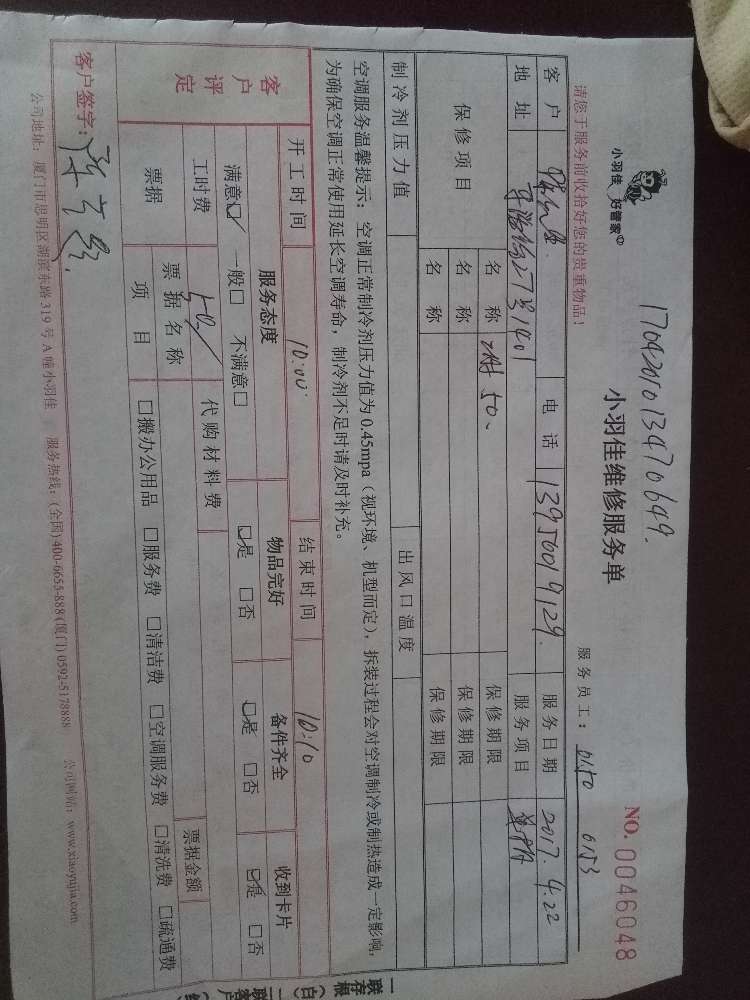 17042010134706​49.
小羽佳 好管家
小羽佳维修服务单
NO. 0046048
请您于服务前收拾好您的贵重物品!
服务员工: 0150 0153
客户 电话 13950019129. 服务日期 2017.4.22
地址 27号1401 服务项目
保修项目 名称 50、 保修期限
名称 保修期限
名称 保修期限
制冷剂压力值 出风口温度
空调服务温馨提示: 空调正常制冷剂压力值为0.45mpa (视环境、机型而定), 拆装过程会对空调制冷或制热造成一定影响,
为确保空调正常使用延长空调寿命, 制冷剂不足时请及时补充。
开工时间 10:00 结束时间 10:10
客户评定 服务态度 物品完好 备件齐全 收到卡片
满意☑ 一般□ 不满意□ ☑是 □否 ☑是 □否 ☑是 □否
工时费 50 代购材料费
票据 票据名称 票据金额
项目 □搬办公用品 □服务费 □清洁费 □空调服务费 □清洗费 □疏通费
客户签字:
公司地址: 厦门市思明区湖滨东路319号A幢小羽佳 服务热线: (全国)400-6655-888/(厦门)0592-5178888 公司网站: www.xiaoyujia.com
一联存根(白)